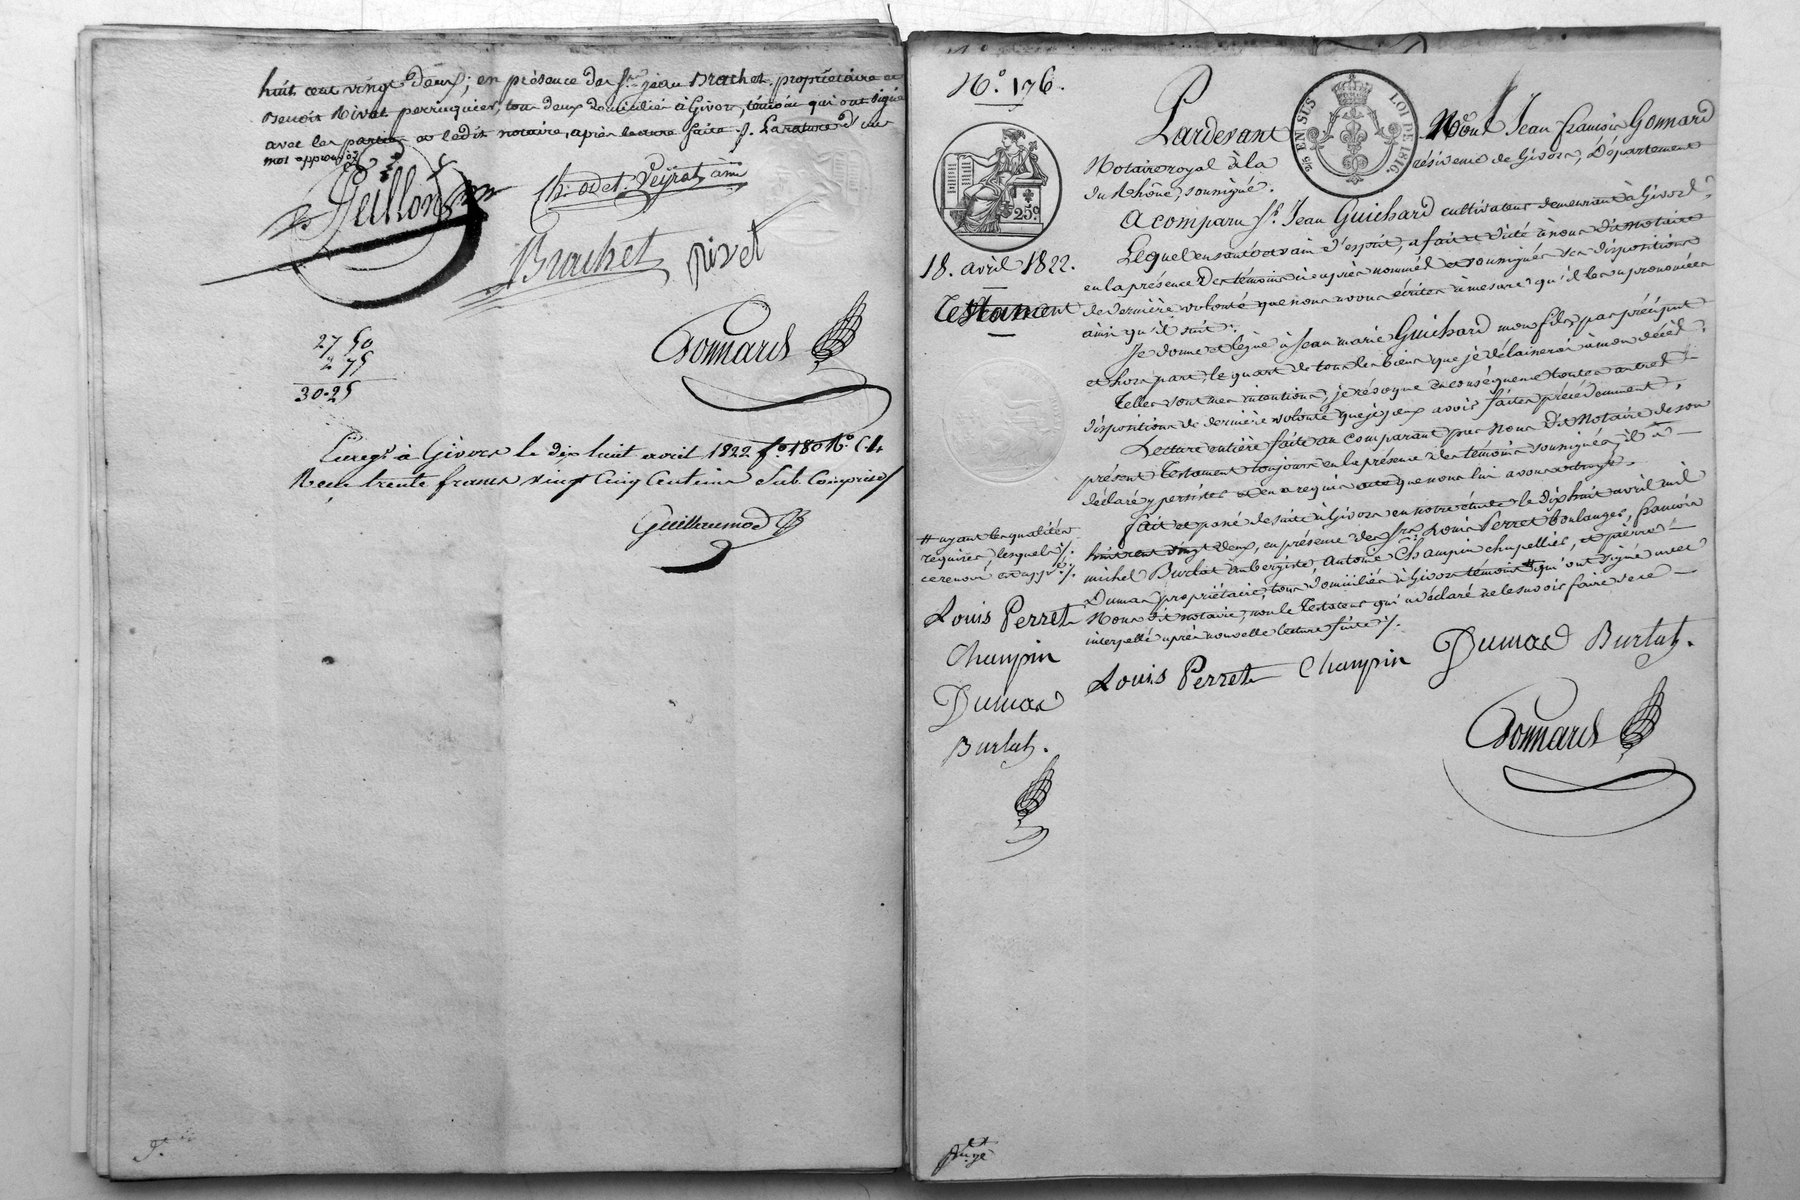 huit cent vingt deux; en présence des Srs. jean Brachet propriétaire et
Benoit Rivat perruquier, tous deux domiciliés à Givors, témoins qui ont signé
avec les parties et ledit notaire, après lecture faite ./. La rature d'un
mot approuvée
Peillon
Ch. odet. Veyrat ainé
Brachet
rivet
Gonnard
27 50
2 75
30-25
Enregé. à Givors le dix huit avril 1822 fo. 180 Ro. C.
Reçu trente francs vingt Cinq Centimes Sub. Compris
Guillaumod
No. 176.
25 EN SUS
LOI DE 1816.
25c
18. avril 1822.
Testament
Pardevant Me. Jean francois Gonnard
Notaire royal à la résidence de Givors, Département
du Rhône, soussigné.
A comparu Sr. Jean Guichard cultivateur demeurant à Givors
Lequel en santé et sain d'esprit, a fait et dicté à nous dit notaire
en la présence des témoins ci après nommés et soussignés ses dispositions
de dernière volonté que nous avons écrites à mesure qu'il les a prononcées
ainsi qu'il suit:
Je donne et lègue à Jean marie Guichard mon fils, par préciput
et hors part, le quart de tous les biens que je délaisserai à mon décès.
Telles sont mes intentions, je révoque en conséquence toutes autres
dispositions de dernière volonté que je peux avoir faites précédemment.
Lecture entière faite au comparant par Nous dit Notaire de son
présent Testament toujours en la présence des témoins soussignés, il a
déclaré y persister et en a requis acte que nous lui avons octroyé.
fait et passé de suite à Givors en notre étude le dix huit avril mil
huit cent vingt deux, en présence des Srs. Louis Perret boulanger, francois
michel Burlat aubergiste, Antoine Champin chapellier, et pierre
Dumas propriétaire, tous domiciliés à Givors témoins # qui ont signé avec
Nous dit notaire, non le Testateur qui a déclaré ne le savoir faire de ce
interpellé après nouvelle lecture faite ./.
# ayant les qualités
requises, lesquels ./.
ce renvoi est appé. ./.
Louis Perret
Champin
Dumas
Burlat.
Louis Perret Champin Dumas Burlat.
Gonnard